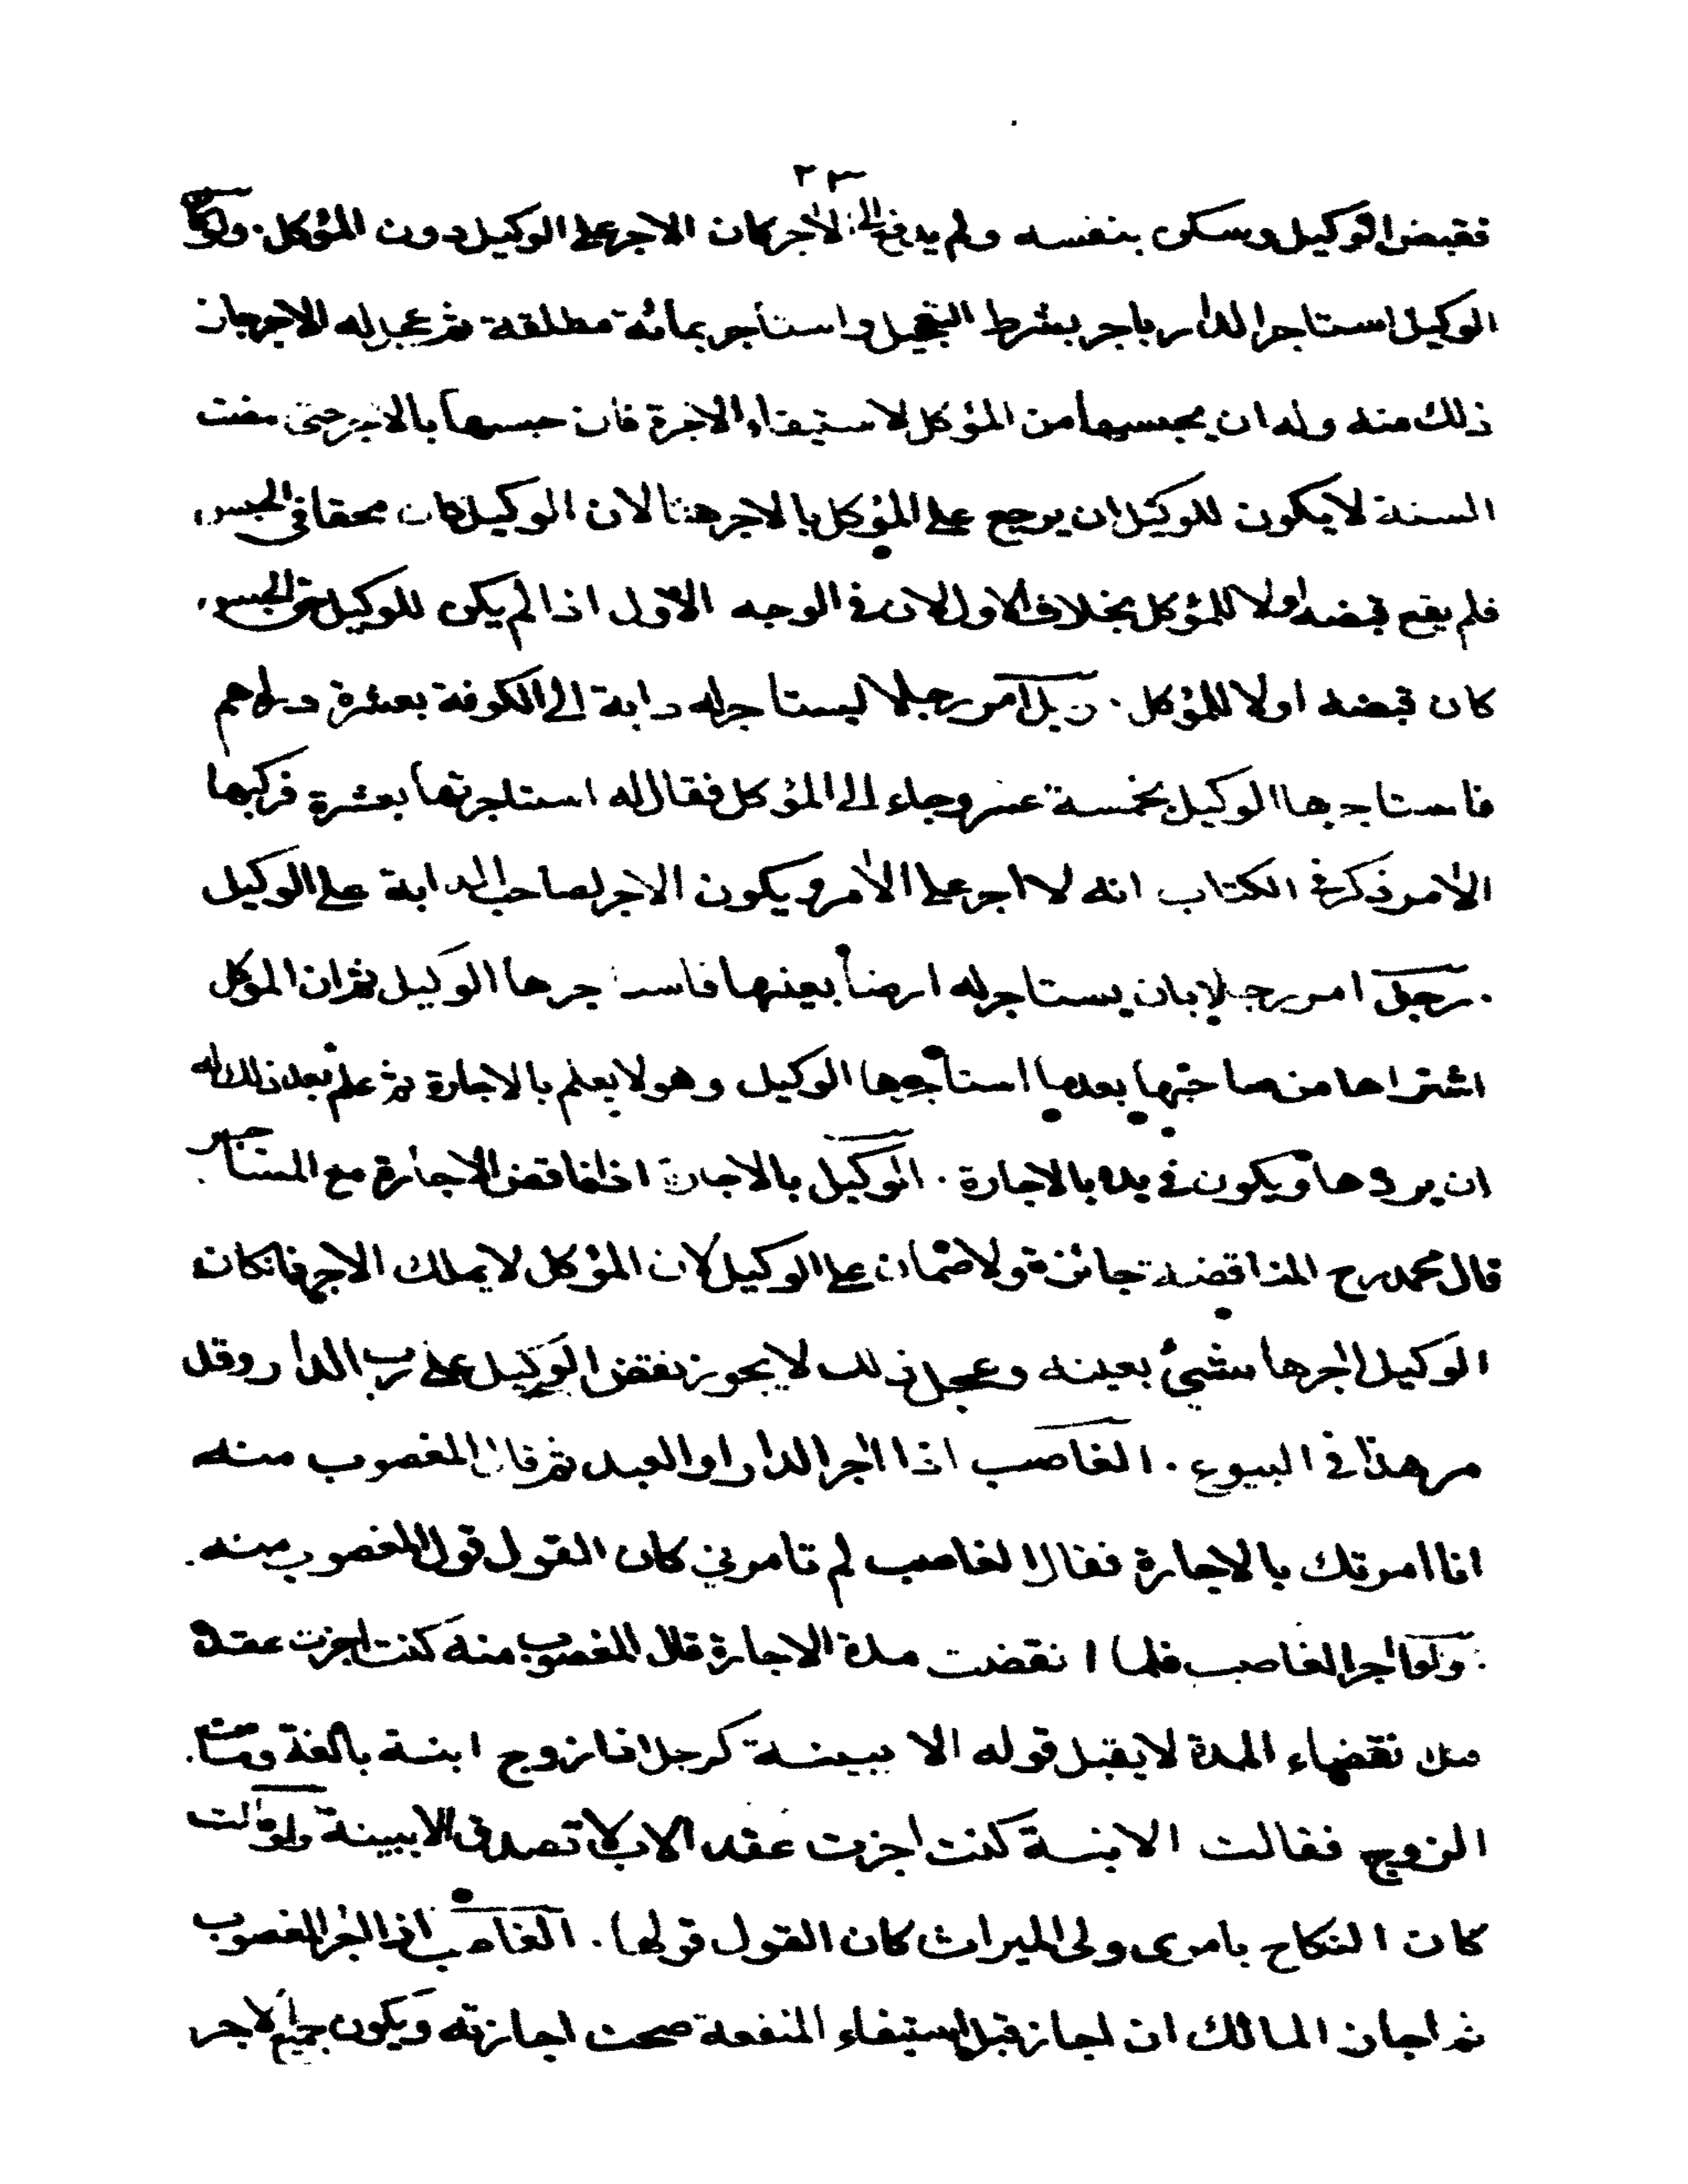 ٢٣
فقبض الوكيل وسكن بنفسه ولم يدفع الى الآجر كان الاجر على الوكيل دون المؤكل. ولو كان
الوكيل استاجر الدار باجر بشرط التعجيل واستاجر بمائة مطلقة ثم عجل له الاجر جاز
ذلك منه وله ان يحبسها من المؤكل لاستيفاء الاجرة فان حبسها بالاجر حتى مضت
السنة لا يكون للوكيل ان يرجع على المؤكل بالاجر هنا لان الوكيل كان محقا في الحبس
فلم يقع قبضه اولا للمؤكل بخلاف الاول لان في الوجه الاول اذا لم يكن للوكيل حق الحبس
كان قبضه اولا للمؤكل. رجل امر رجلا ليستاجر له دابة الى الكوفة بعشرة دراهم
فاستاجرها الوكيل بخمسة عشر وجاء الى المؤكل فقال له استاجرتها بعشرة فركبها
الآمر ذكر في الكتاب انه لا اجر على الآمر ويكون الاجر لصاحب الدابة على الوكيل
. رجل امر رجلا بان يستاجر له ارضا بعينها فاستاجرها الوكيل ثم ان الموكل
اشتراها من صاحبها بعد ما استاجرها الوكيل وهو لا يعلم بالاجارة ثم علم بعد ذلك له
ان يردها ويكون في يده بالاجارة. الوكيل بالاجارة اذا ناقض الاجارة مع المستاجر
قال محمد رح المناقضة جائزة ولا ضمان على الوكيل لان المؤكل لا يملك الاجر فان كان
الوكيل آجرها بشئ بعينه وعجل ذلك لا يجوز نقض الوكيل على رب الدار وقد
مر هذا في البيوع. الغاصب اذا آجر الدار او العبد ثم قال المغصوب منه
انا امرتك بالاجارة فقال الغاصب لم تامرني كان القول قول المغصوب منه.
ولو آجر الغاصب فلما انقضت مدة الاجارة قال المغصوب منه كنت اجزت عقده
قبل نقضاء المدة لا يقبل قوله الا ببينة كرجل اذا زوج ابنة بالغة ومات
الزوج فقالت الابنة كنت اجزت عقد الاب لا تصدق الا ببينة ولو قالت
كان النكاح بامرى ولى الميراث كان القول قولها. الغاصب اذا آجر المغصوب
ثم اجاز المالك ان اجاز قبل استيفاء المنفعة صحت اجازته ويكون جميع الاجر